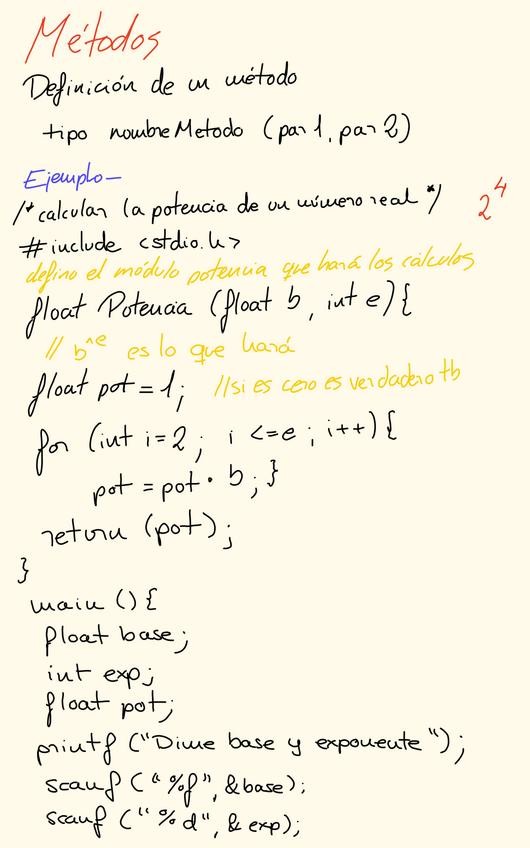 Métodos
Definición de un método
tipo nombreMetodo (par1, par2)
Ejemplo-
/* calcular la potencia de un número real */ 2^4
#include <stdio.h>
defino el módulo potencia que hará los cálculos
float Potencia (float b, int e){
// b^e es lo que hará
float pot = 1; //si es cero es verdadero tb
for (int i=2; i <=e; i++){
pot = pot · b; }
return (pot);
}
main (){
float base;
int exp;
float pot;
printf ("Dime base y exponente");
scanf ("%f", &base);
scanf ("%d", & exp);